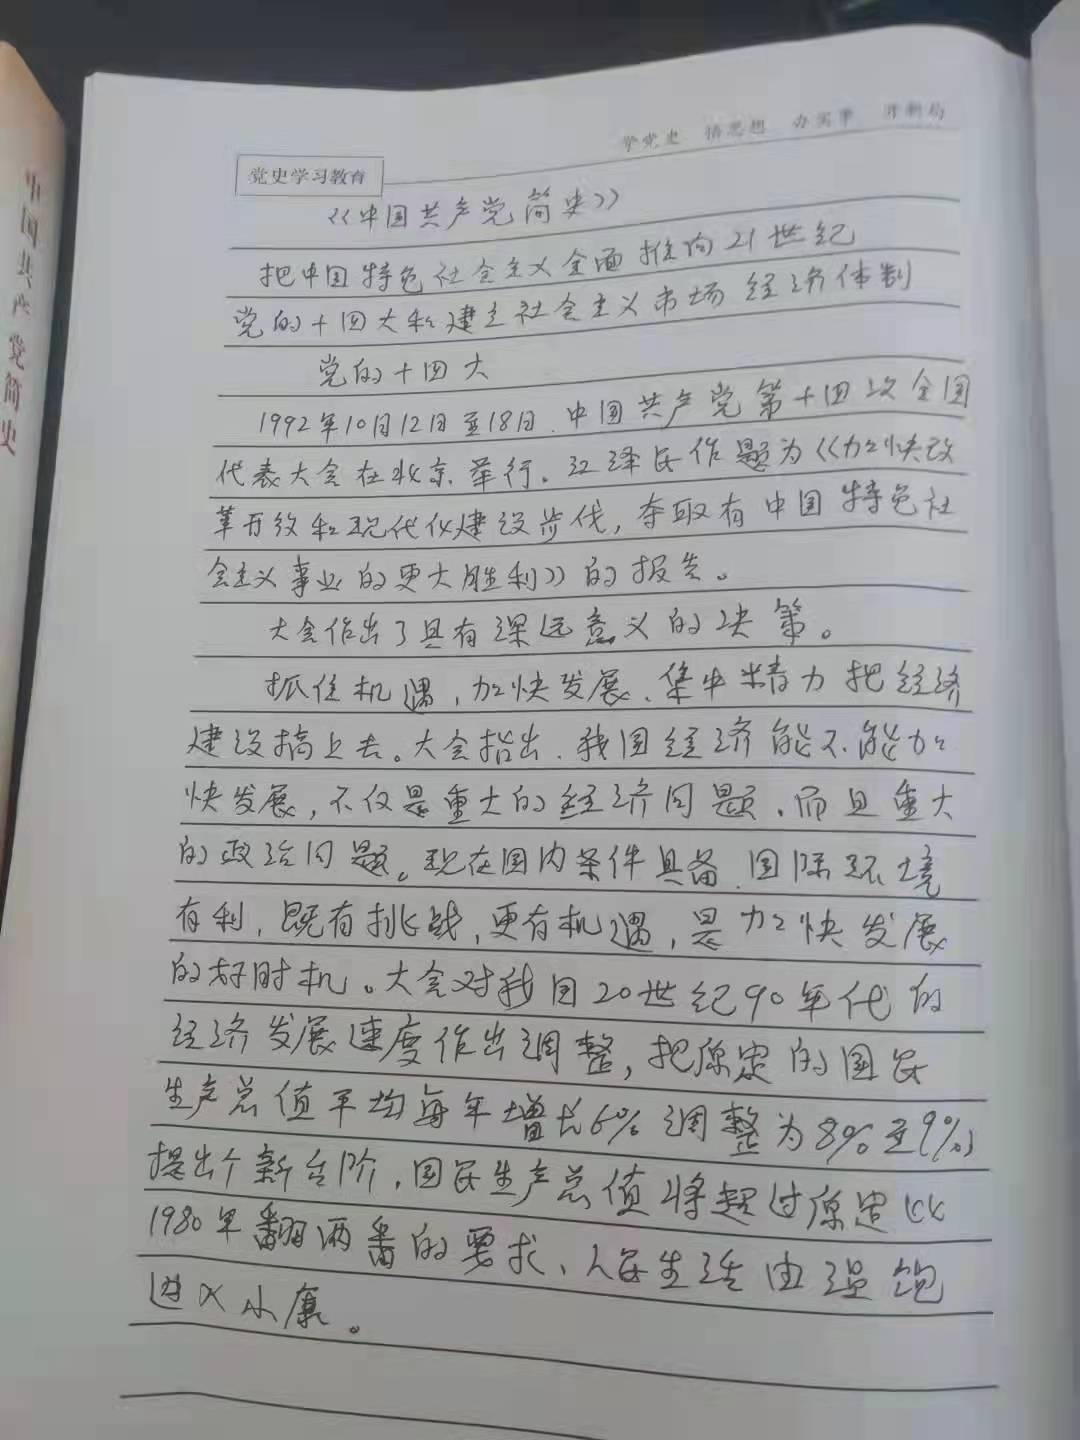 学党史 悟思想 办实事 开新局
党史学习教育
《中国共产党简史》
把中国特色社会主义全面推向21世纪
党的十四大和建立社会主义市场经济体制
党的十四大
1992年10月12日至18日.中国共产党第十四次全国
代表大会在北京举行。江泽民作题为《加快改
革开放和现代化建设步伐,夺取有中国特色社
会主义事业的更大胜利》的报告。
大会作出了具有深远意义的决策。
抓住机遇,加快发展、集中精力把经济
建设搞上去。大会指出.我国经济能不能加
快发展,不仅是重大的经济问题、而且重大
的政治问题。现在国内条件具备.国际环境
有利,既有挑战,更有机遇,是加快发展
的好时机。大会对我国20世纪90年代的
经济发展速度作出调整,把原定的国民
生产总值平均每年增长6%调整为8%至9%,
提出个新台阶.国民生产总值将超过原定比
1980年翻两番的要求、人民生活由温饱
进入小康。
中国共产党简史